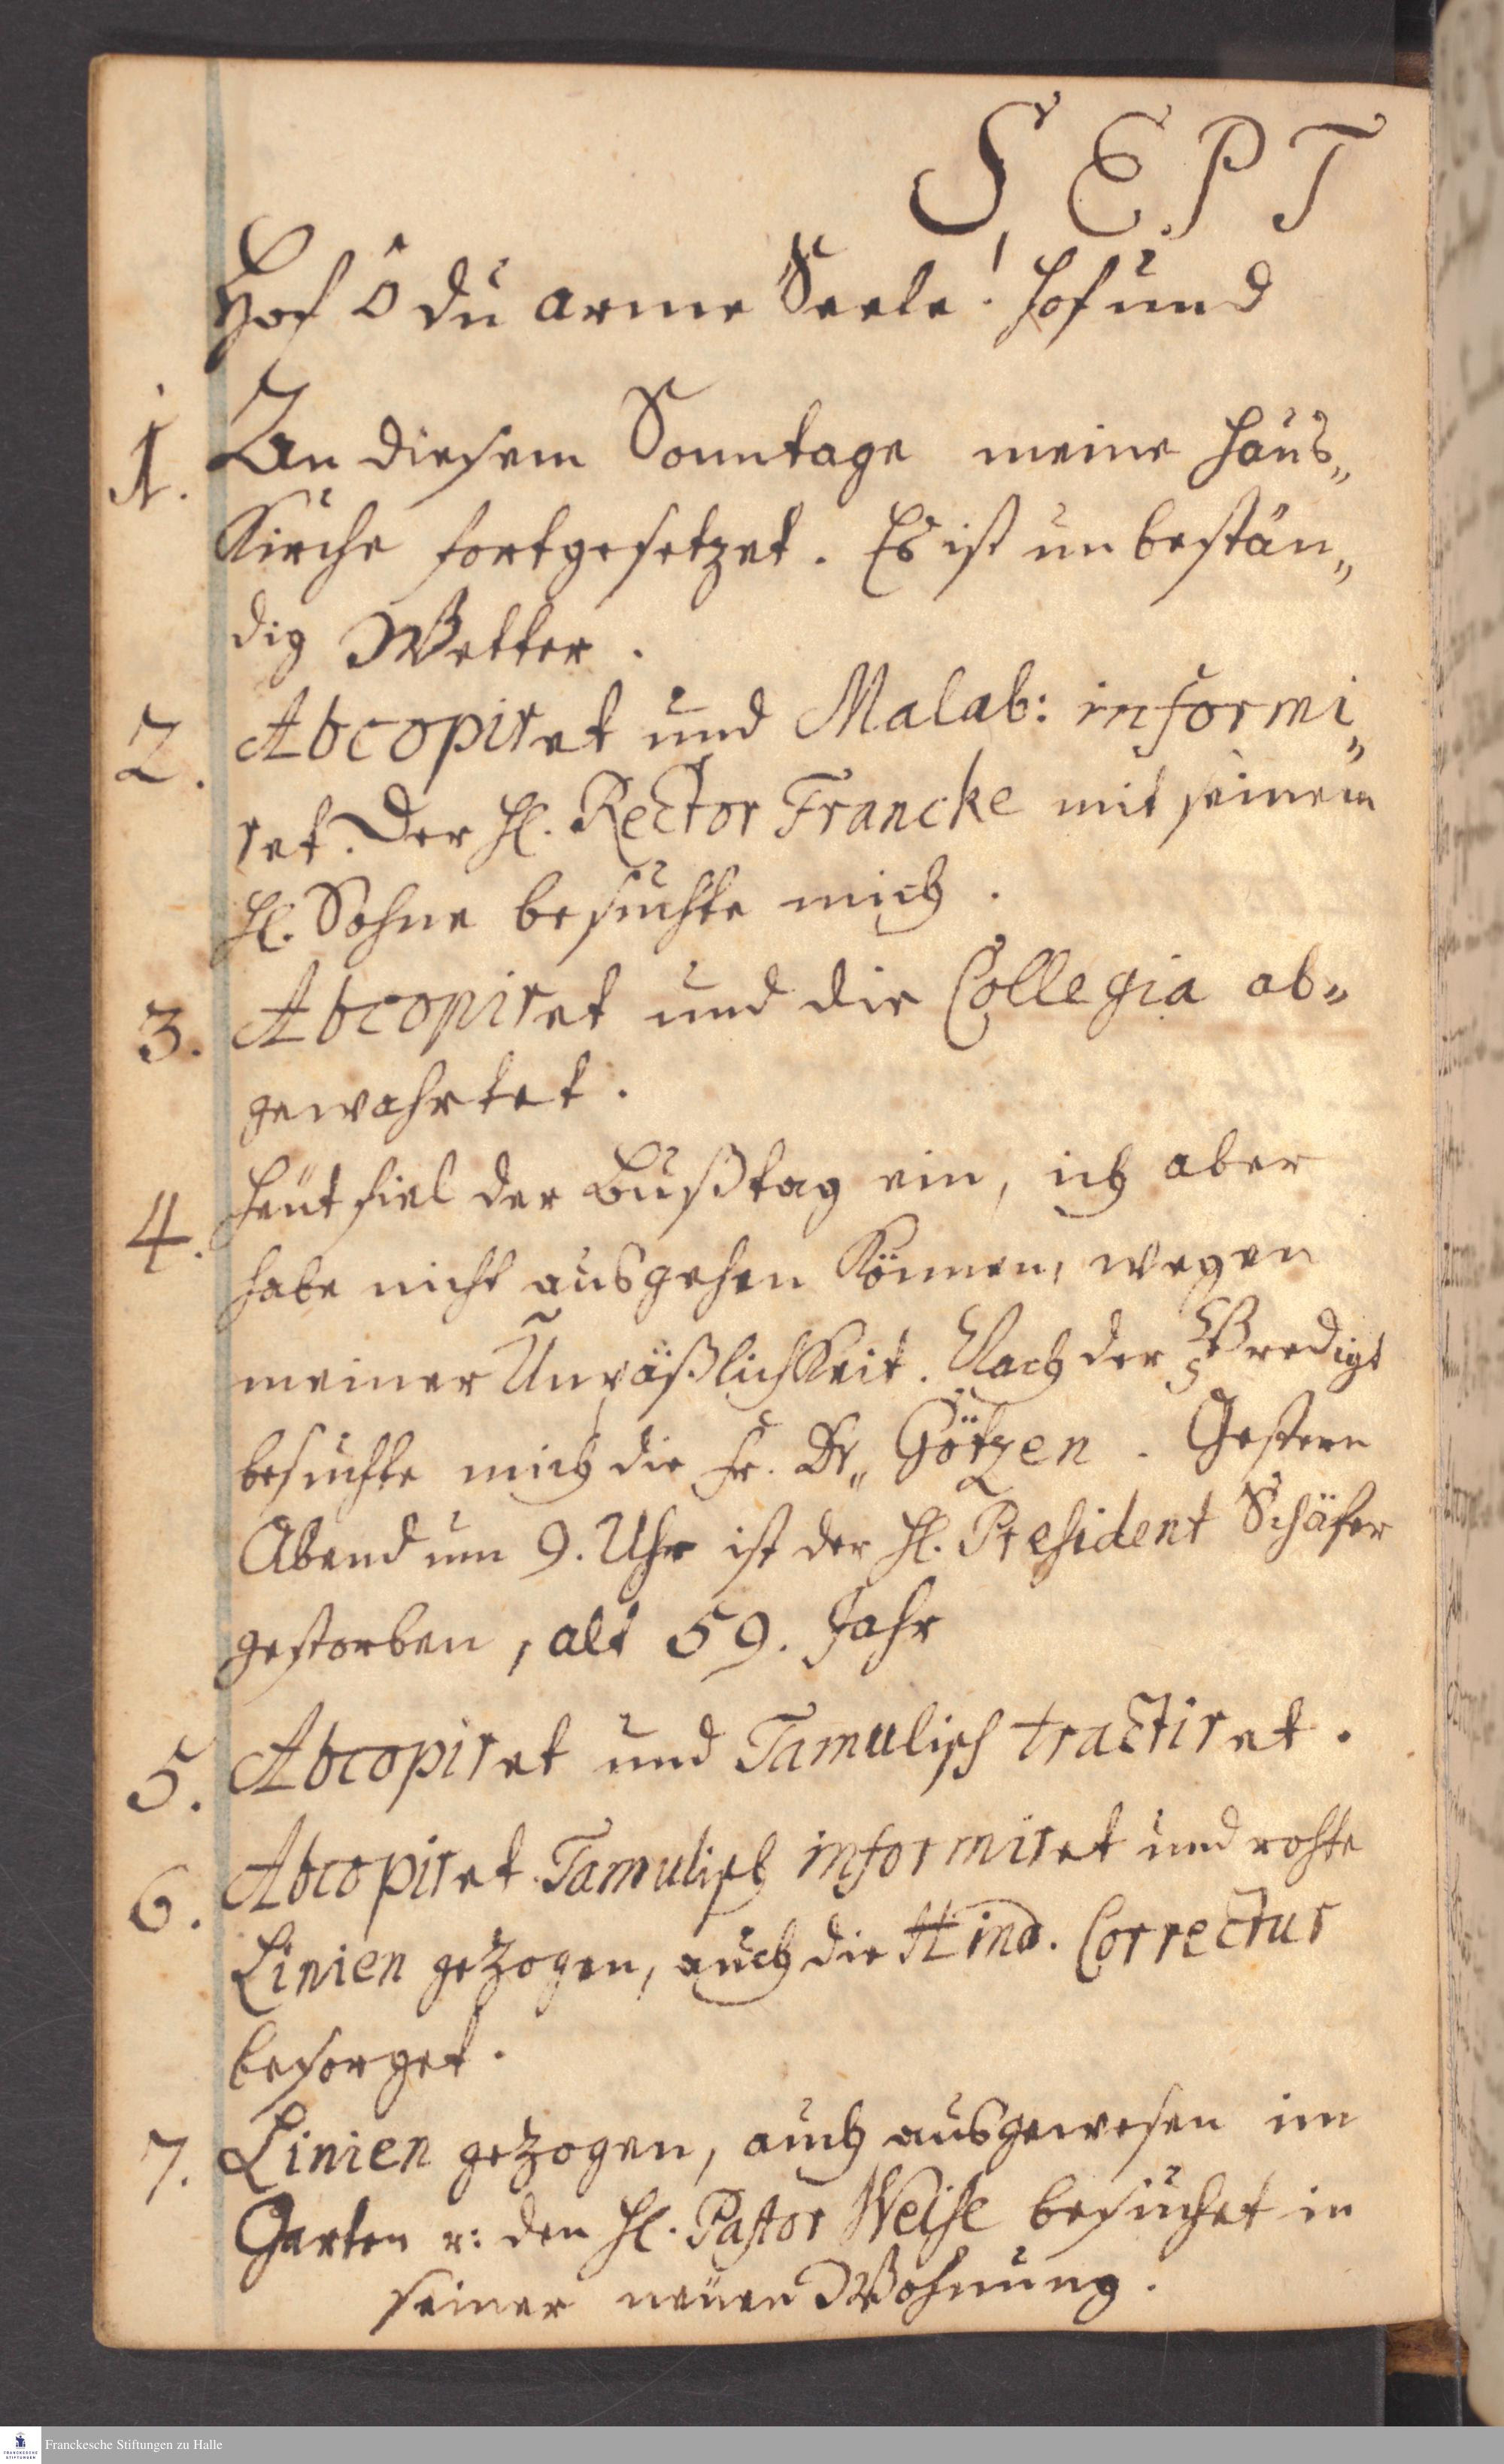 SEPT
Hof ô du arme Seele! hof und
1. An diesem Sonntage meine Haus„
Kirche fortgesetzet. Es ist unbestän„
dig Wetter.
2. Abcopiret und Malab: informi„
ret. Der H. Rector Francke mit seinem
H. Sohne besuchte mich.
3. Abcopiret und die Collegia ab„
gewahrtet.
4. Heut fiel der Bußtag ein, ich aber
habe nicht ausgehen können, wegen
meiner Unpäßlichkeit. Nach der Predigt
besuchte mich die Fr. Dr„ Götzen. Gestern
Abend um 9. Uhr ist der H. President Schäfer
gestorben, alt 59. Jahr
5. Abcopiret und Tamulisch tractiret.
6. Abcopiret Tamulisch informiret und rohte
Linien gezogen, auch die Hind. Correctur
besorget.
7. Linien gezogen, auch ausgewesen im
Garten u: den H. Pastor Weise besuchet in
seiner neuen Wohnung.
Franckesche Stiftungen zu Halle